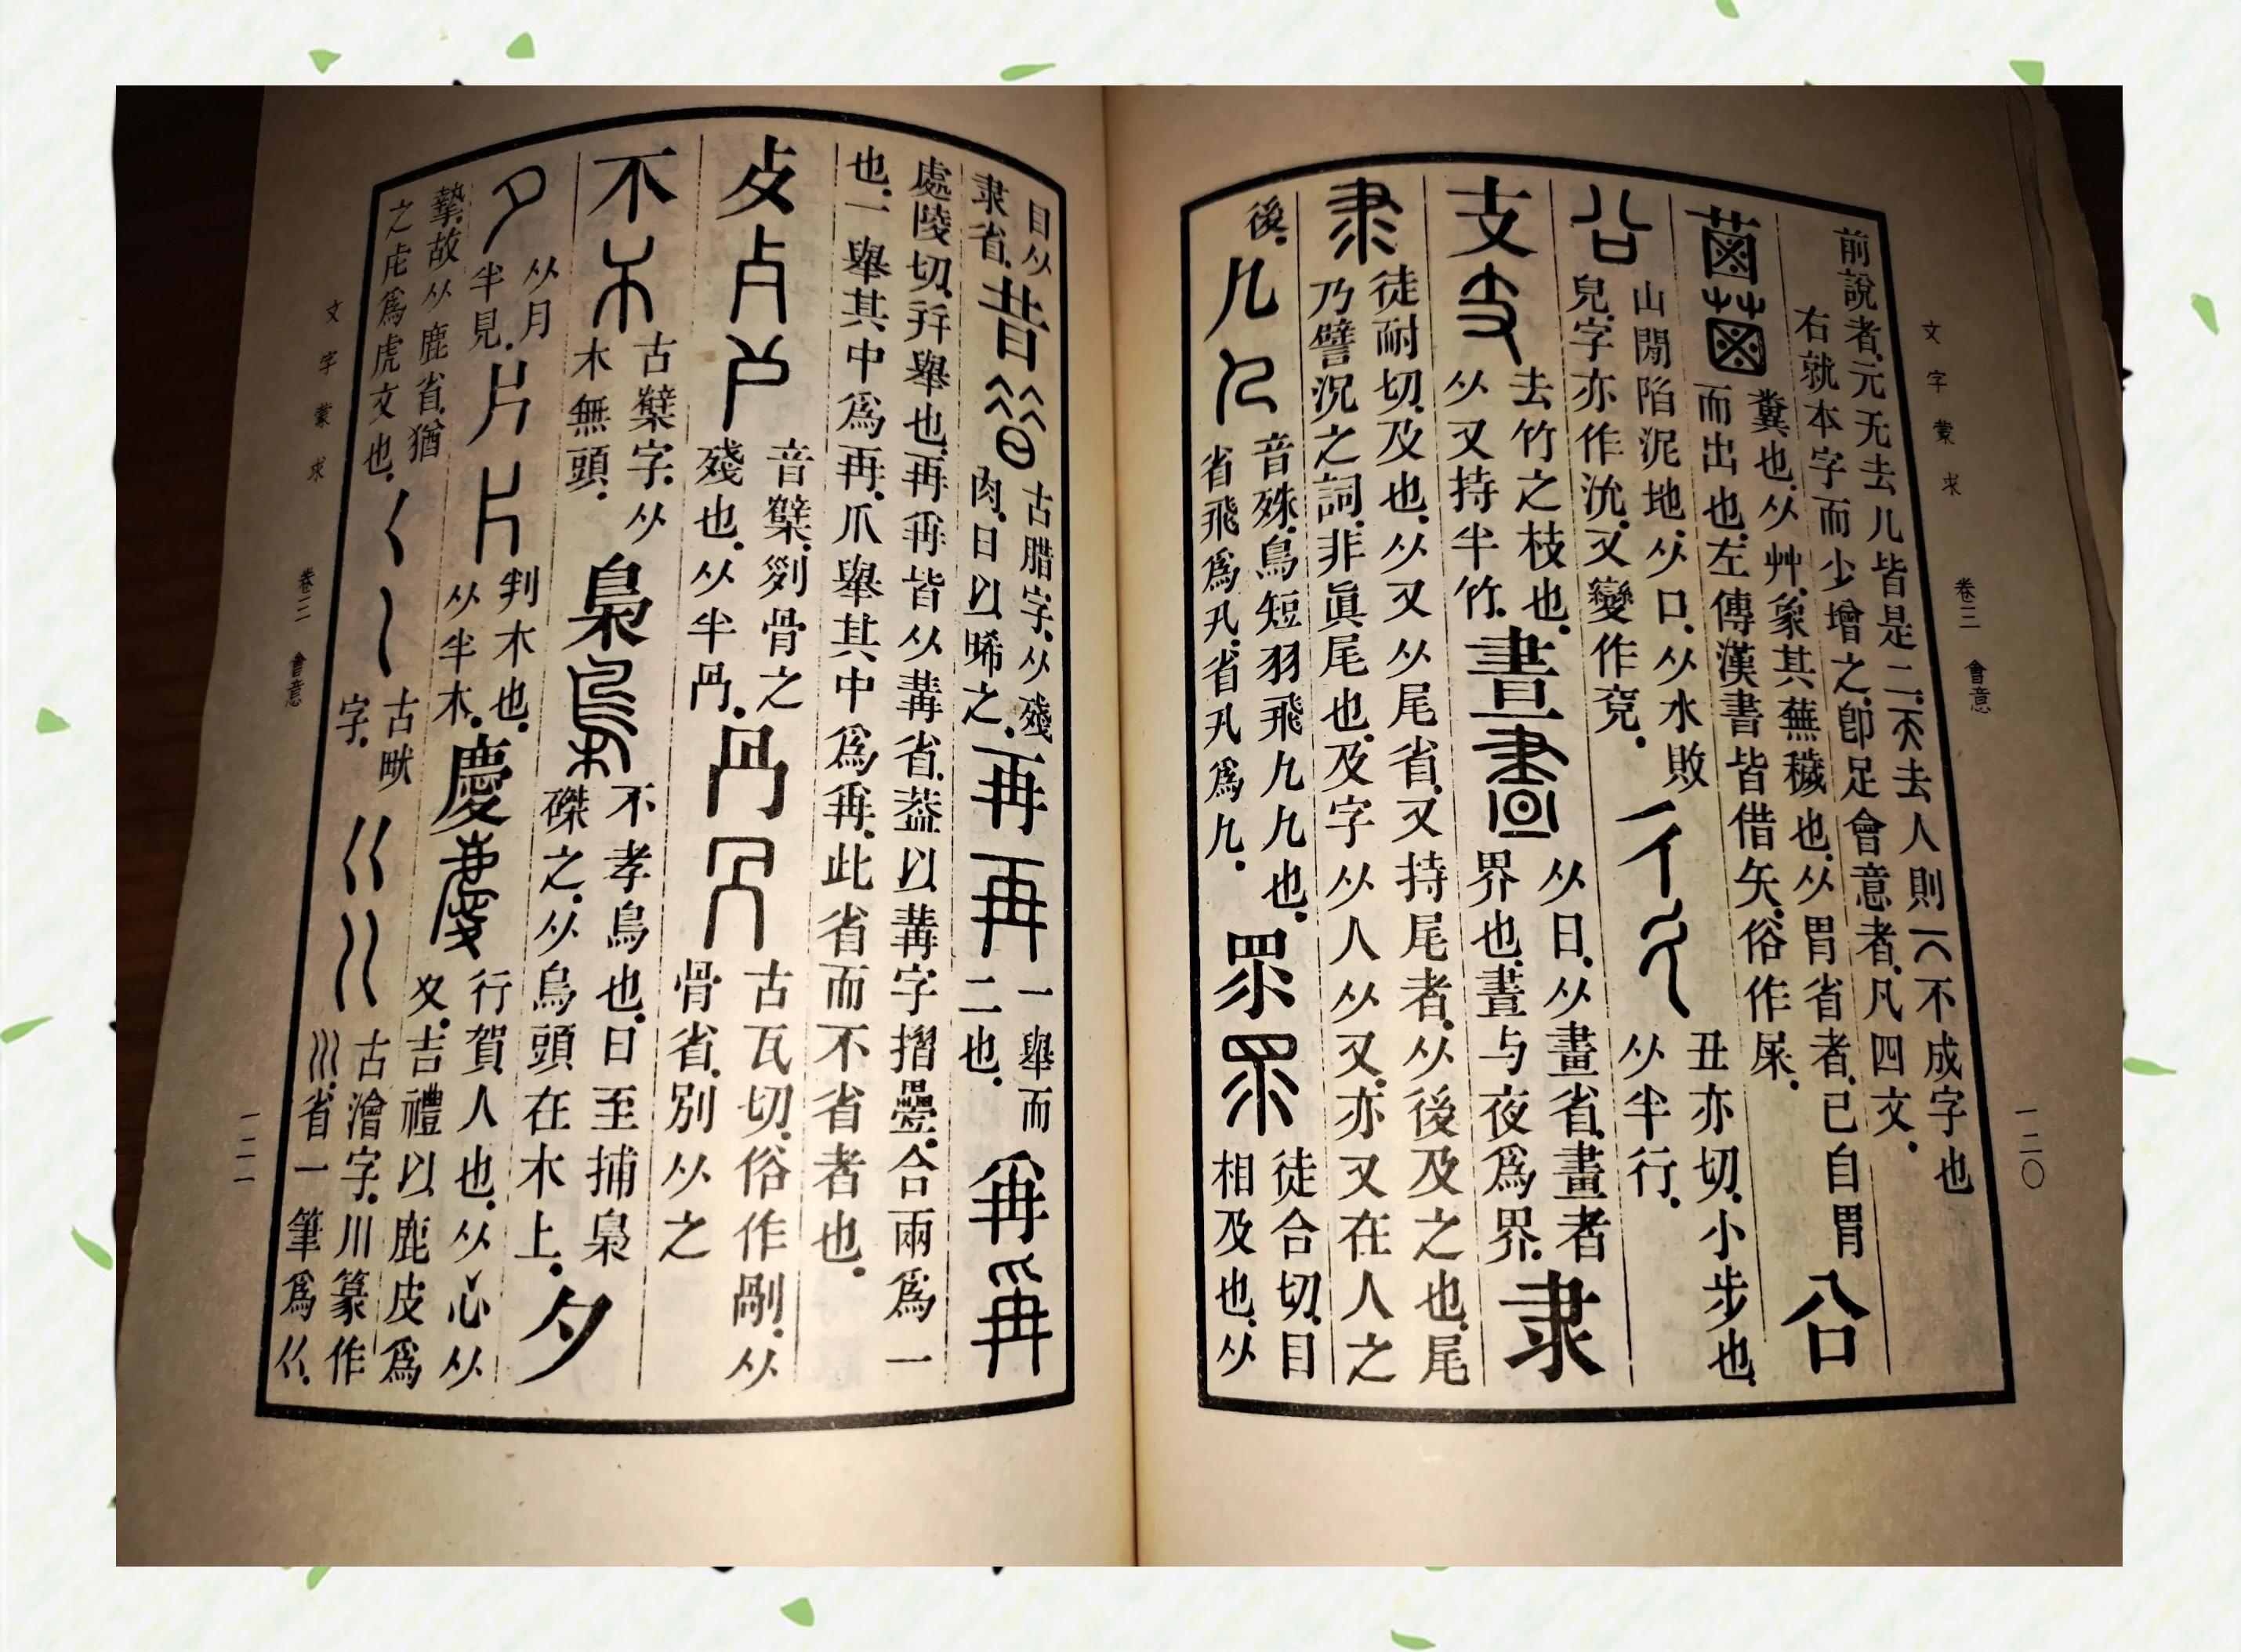 文字蒙求 卷三 會意 一二〇
前說者.元无去儿皆是二.天去人則一八不成字也
右就本字而少增之.卽足會意者.凡四文.
𦳊 糞也.从艸.象其蕪穢也.从胃省者.已自胃
而出也.左傳漢書皆借矢.俗作屎.
㕣 山閒陷泥地.从口.从水敗
皃.字亦作沇.又變作兗.
彳 丑亦切.小步也.
从半行.
支 去竹之枝也.
从又持半竹.
晝 从日.从畫省.畫者
界也.晝与夜爲界.
隶 徒耐切.及也.从又从尾省.又持尾者.从後及之也.尾
乃譬況之詞.非眞尾也.及字从人从又.亦又在人之
後.
𠘧 音殊.鳥短羽飛𠘧𠘧也.
省飛爲卂.省卂爲𠘧.
眔 徒合切.目
相及也.从
目从
隶省.
昔 古腊字.从殘
肉.日以晞之.
再 一舉而
二也.
爯
處陵切.幷舉也.再爯皆从冓省.葢以冓字摺疊.合兩爲一
也.一舉其中爲再.爪舉其中爲爯.此省而不省者也.
歺 音櫱.𠛱骨之
殘也.从半冎.
冎 古瓦切.俗作剮.从
骨省.別从之
𣎴 古櫱字.从
木無頭.
梟 不孝鳥也.日至捕梟
磔之.从鳥頭在木上.
夕 从月
半見.
片 判木也.
从半木.
慶 行賀人也.从心.从
夊.吉禮以鹿皮爲
摯.故从鹿省.猶
之虍爲虎文也.
𡿨 古畎
字.
巜 古澮字.川篆作
巛.省一筆爲巜.
文字蒙求 卷三 會意 一二一